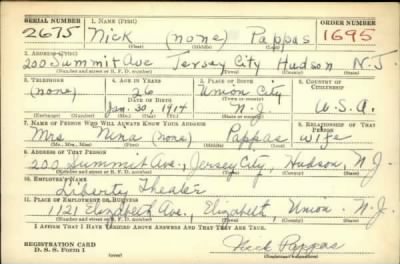 SERIAL NUMBER 1. NAME (Print) ORDER NUMBER
2675 Nick (none) Pappas 1695
(First) (Middle) (Last)
2. ADDRESS (Print)
200 Summit Ave Jersey City Hudson N.J.
(Number and street or R. F. D. number) (Town) (County) (State)
3. TELEPHONE 4. AGE IN YEARS 5. PLACE OF BIRTH 6. COUNTRY OF CITIZENSHIP
(none) 26 Union City
DATE OF BIRTH (Town or county)
Jan. 30, 1914 N.J. U.S.A.
(Exchange) (Number) (Mo.) (Day) (Yr.) (State or country)
7. NAME OF PERSON WHO WILL ALWAYS KNOW YOUR ADDRESS 8. RELATIONSHIP OF THAT PERSON
Mrs Nina (none) Pappas wife
(Mr., Mrs., Miss) (First) (Middle) (Last)
9. ADDRESS OF THAT PERSON
200 Summit Ave., Jersey City, Hudson, N.J.
(Number and street or R. F. D. number) (Town) (County) (State)
10. EMPLOYER'S NAME
Liberty Theater
11. PLACE OF EMPLOYMENT OR BUSINESS
1121 Elizabeth Ave., Elizabeth, Union. N.J.
(Number and street or R. F. D. number) (Town) (County) (State)
I AFFIRM THAT I HAVE VERIFIED ABOVE ANSWERS AND THAT THEY ARE TRUE.
REGISTRATION CARD
D. S. S. Form 1 Nick Pappas
(over) (Registrant's signature)